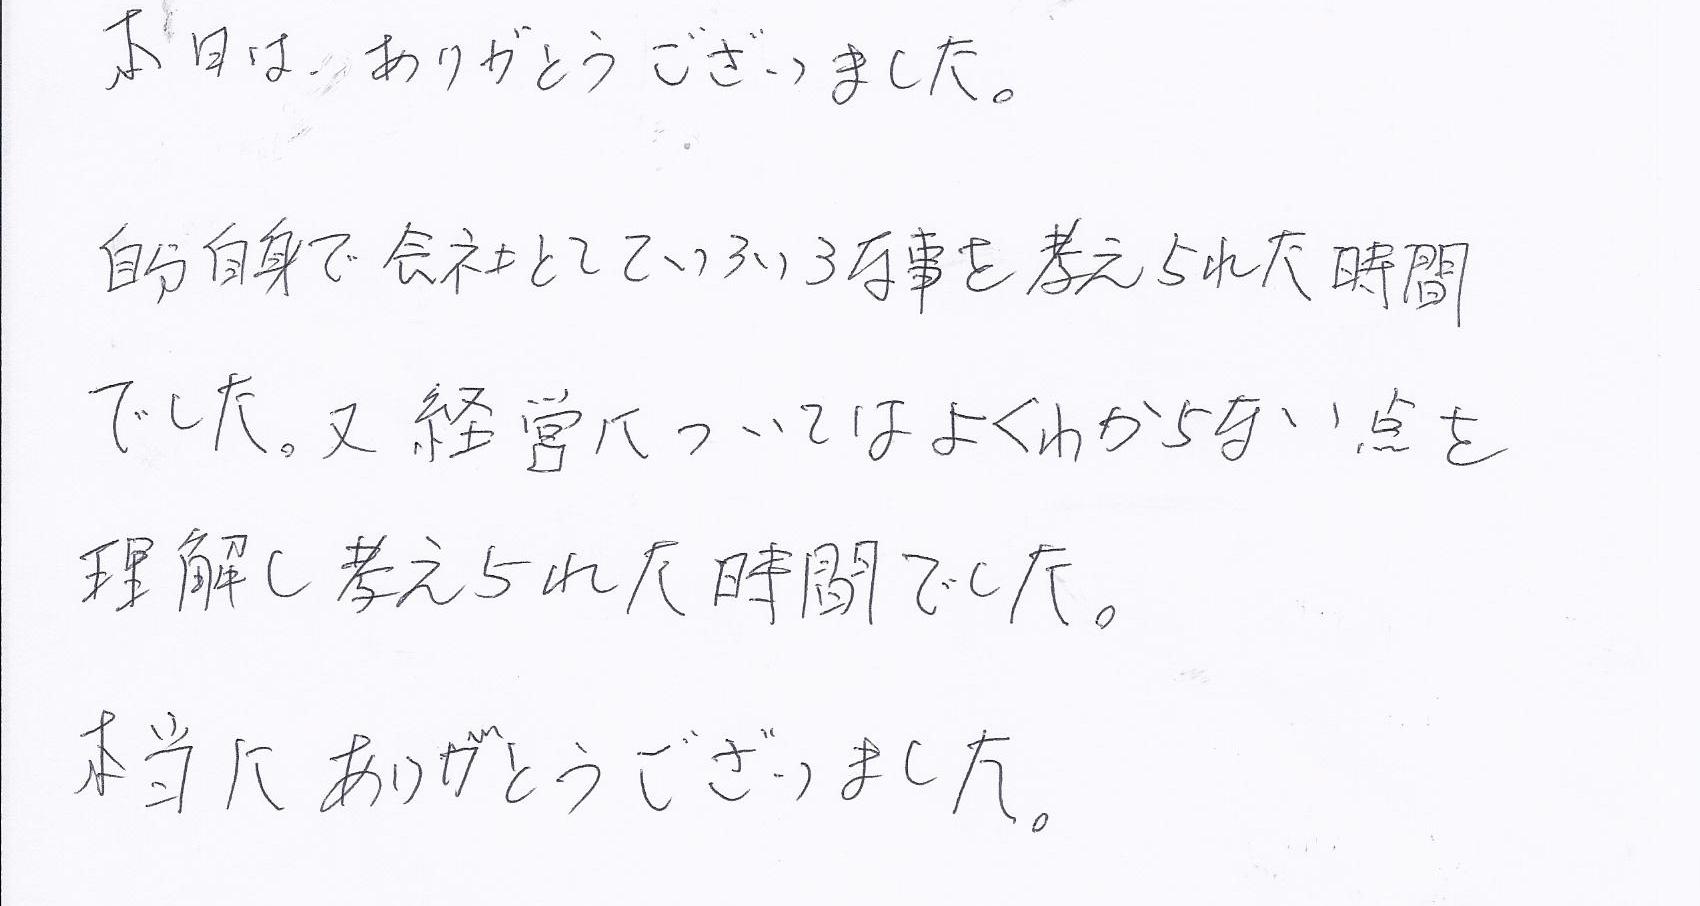 本日は、ありがとうございました。
自分自身で会社としていろいろな事を考えられた時間
でした。又経営についてはよくわからない点を
理解し考えられた時間でした。
本当にありがとうございました。